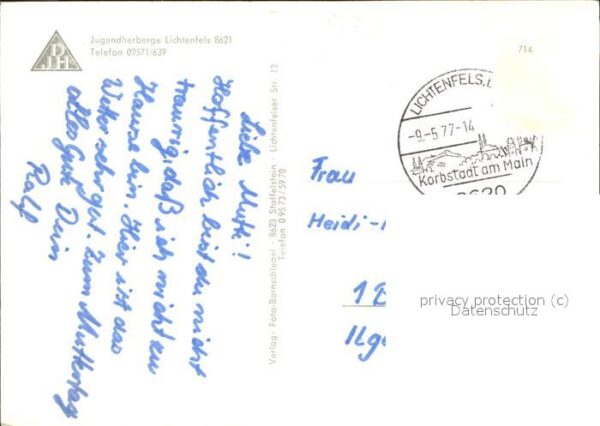 DJH
Jugendherberge Lichtenfels 8621
Telefon 09571/639
Liebe Mutti!
Hoffentlich bist du nicht
traurig, daß ich nicht zu
Hause bin. Hier ist das
Wetter sehr gut. Zum Muttertag
alles Gute Dein
Ralf
Verlag: Foto-Bornschlegel - 8623 Staffelstein - Lichtenfelser Str. 13
Telefon 09573/5970
714
LICHTENFELS,
-9.-5.77-14
Korbstadt am Main
8620
Frau
Heidi-
1
Ilg
privacy protection (c)
Datenschutz